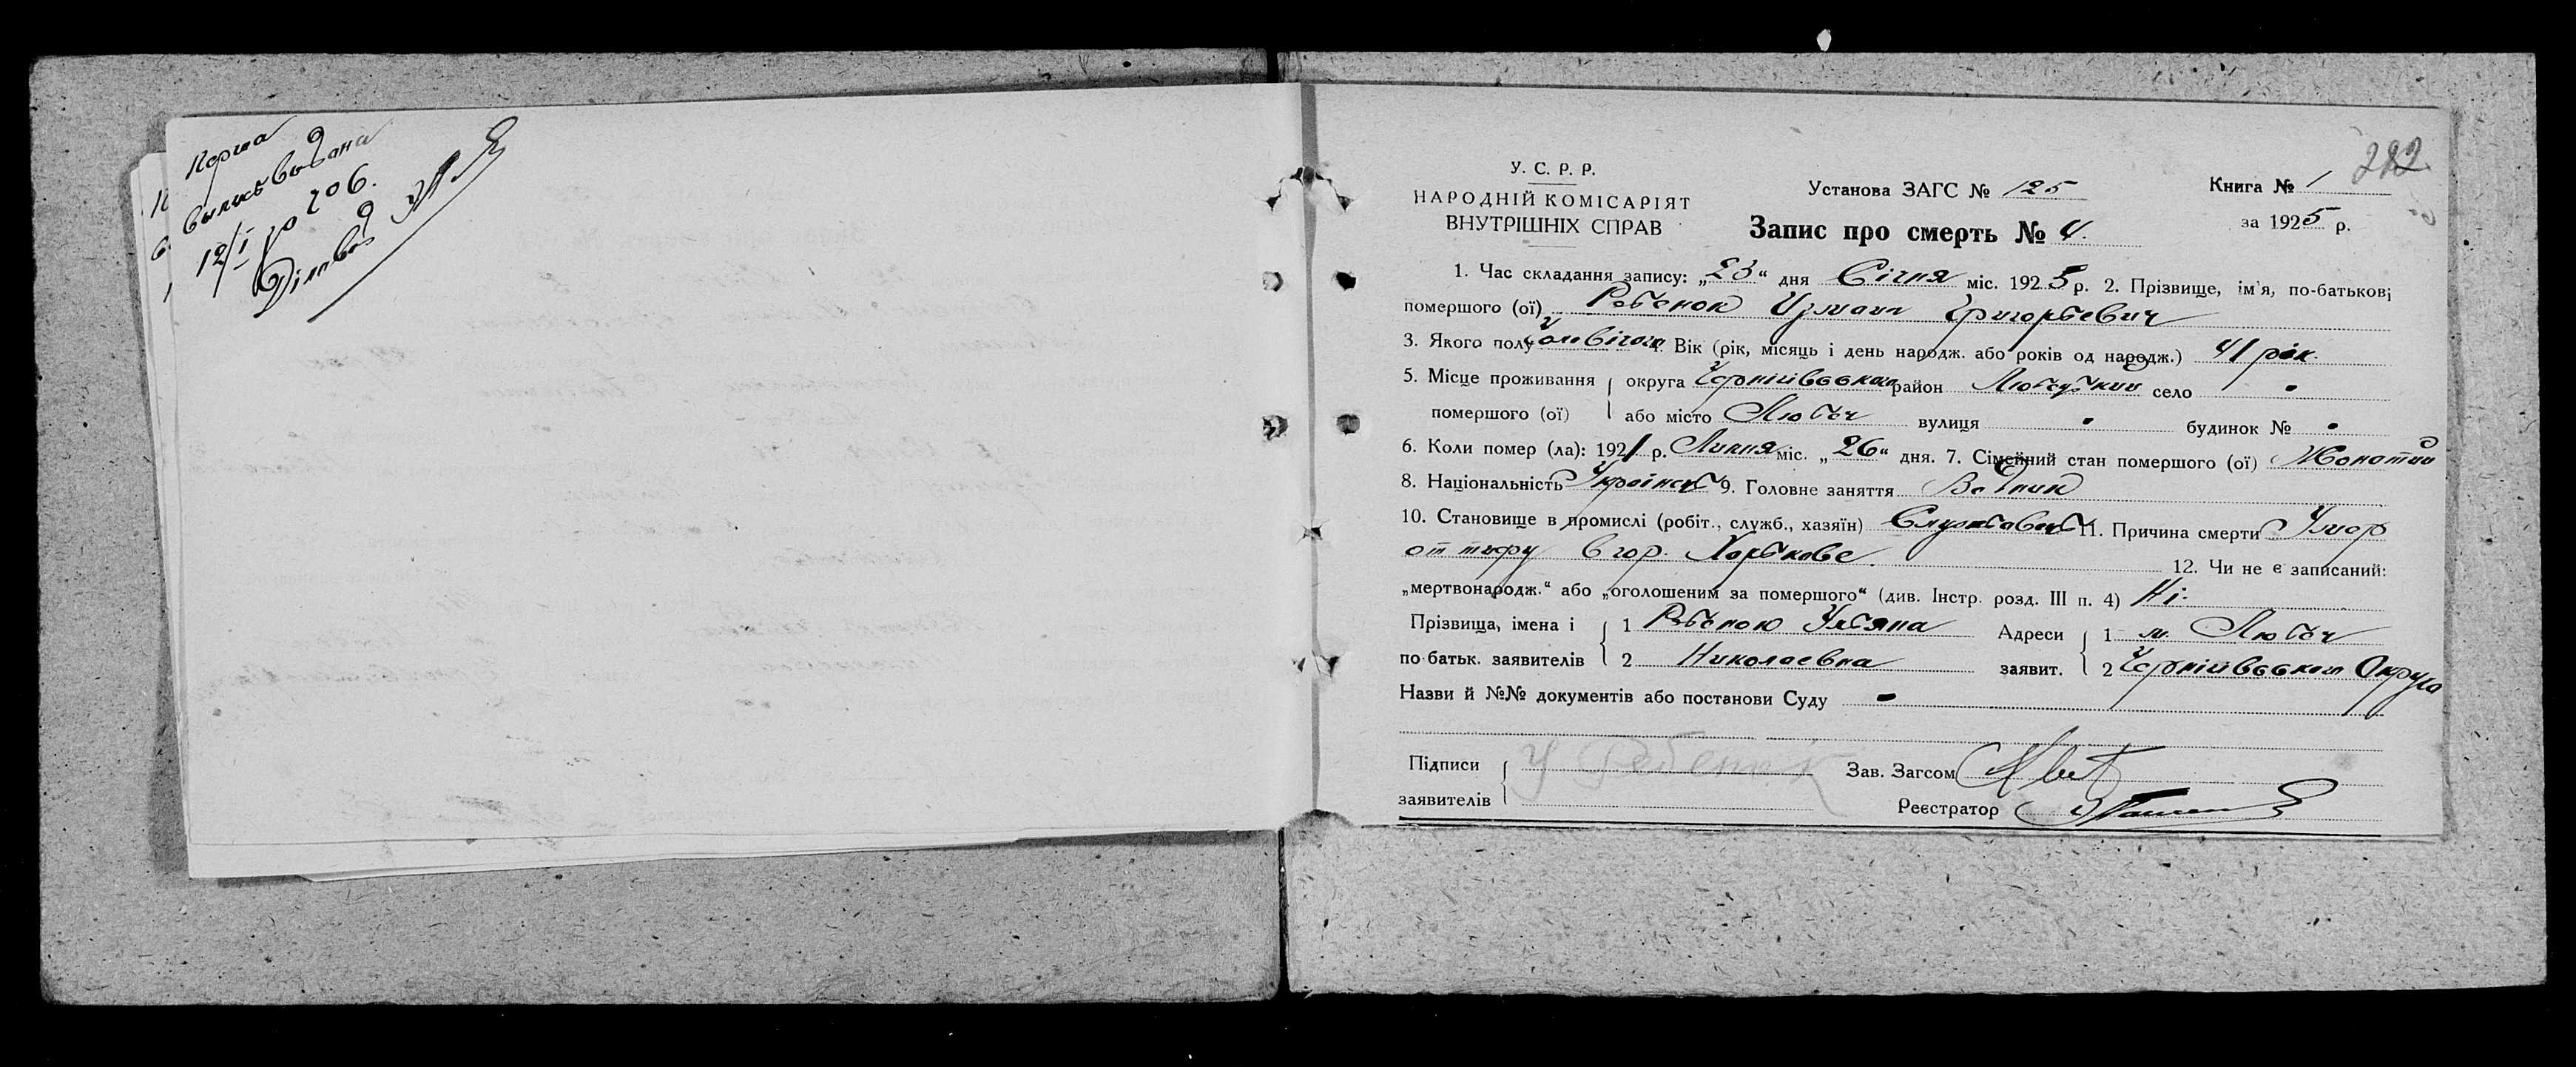 Перша
выпись выдана
12/I по 206.
Діловод
У. С. Р. Р.
НАРОДНІЙ КОМІСАРІЯТ
ВНУТРІШНІХ СПРАВ
Установа ЗАГС № 125
Книга № 1
282
Запис про смерть № 4.
за 1925 р.
1. Час складання запису: „23“ дня Січня міс. 1925 р. 2. Прізвище, ім'я, по-батькові
помершого (ої) Ребенок Измаил Григорьевич
3. Якого полу Чоловічого 4. Вік (рік, місяць і день народж. або років од народж.) 41 рік.
5. Місце проживання помершого (ої) округа Чернійвська район Любецький село
або місто Любеч вулиця будинок №
6. Коли помер (ла): 1921 р. Липня міс. „26“ дня. 7. Сімейний стан помершого (ої) Жонатий
8. Національність Українец 9. Головне заняття
10. Становище в промислі (робіт., служб., хазяїн) 11. Причина смерти Умер
от тифу в гор. Харькове. 12. Чи не є записаний:
„мертвонародж.“ або „оголошеним за помершого“ (див. Інстр. розд. III п. 4) Ні.
Прізвища, імена і по батьк. заявителів 1 Ребенок Ульяна
2 Николаевна
Адреси заявит. 1 м. Любеч
2 Чернійвська Округа
Назви й №№ документів або постанови Суду
Підписи заявителів У Ребенок
Зав. Загсом
Реєстратор